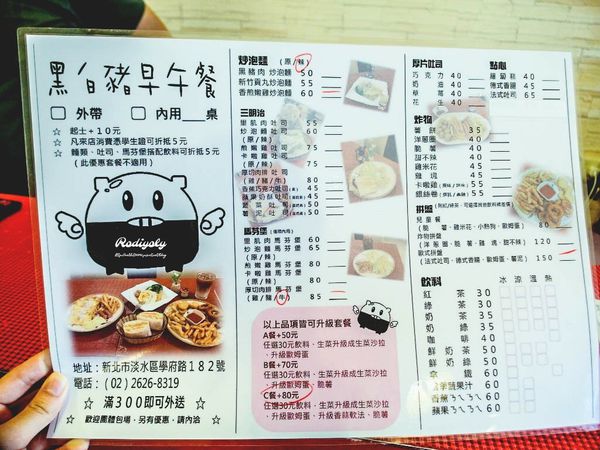 黑白豬早午餐
外帶 內用___桌
☆ 起士+10元
☆ 凡來店消費憑學生證可折抵5元
☆ 麵類、吐司、馬芬堡搭配飲料可折抵5元
(此優惠套餐不適用)
Rodiyoly
地址:新北市淡水區學府路182號
電話:(02)2626-8319
☆ 滿300即可外送 ☆
歡迎團體包場,另有優惠,請內洽
炒泡麵 (原/辣)
黑豬肉炒泡麵 50
新竹貢丸炒泡麵 55
香煎嫩雞炒泡麵 60
三明治
里肌肉吐司 45
炒泡麵吐司 55
(原/辣)
嫩雞吐司 75
卡啦雞吐司
(原/辣) 75
厚切肉排吐司
(雞/豬/牛) 80
香蕉巧克力吐司 45
蘋果奶酥吐司 45
塋菜吐司 50
薯泥吐司 50
馬芬堡
里肌肉馬芬堡 60
(原/辣)
煎嫩雞馬芬堡 60
卡啦雞馬芬堡
(原/辣)
厚切肉排馬芬堡
(雞/豬/牛) 85
以上品項皆可升級套餐
A餐+50元
任選30元飲料、生菜升級成生菜沙拉
、升級歐姆蛋
B餐+70元
任選30元飲料、生菜升級成生菜沙拉
、升級歐姆蛋、脆薯
C餐+80元
任選30元飲料、生菜升級成生菜沙拉
、升級歐姆蛋、升級香蒜軟法、脆薯
厚片吐司
巧克力 40
奶油 40
草莓 40
花生 40
點心
蘿蔔糕 40
德式香腸 45
法式吐司 65
炸物
薯餅 35
洋蔥圈 35
脆薯 40
甜不辣 40
雞米花 45
雞塊 45
卡啦雞 45
銀絲卷 45
拼盤
兒童餐
(脆薯、雞米花、小熱狗、歐姆蛋) 80
炸物拼盤
(洋蔥圈、脆薯、雞塊、甜不辣) 120
歐式拼盤
(法式吐司、德式香腸、歐姆蛋、薯泥) 150
飲料 冰 涼 溫 熱
紅茶 30
綠茶 30
奶茶 35
奶綠 35
咖啡 40
鮮奶茶 50
鮮奶綠 50
蘋果ㄋㄟㄋㄟ 60